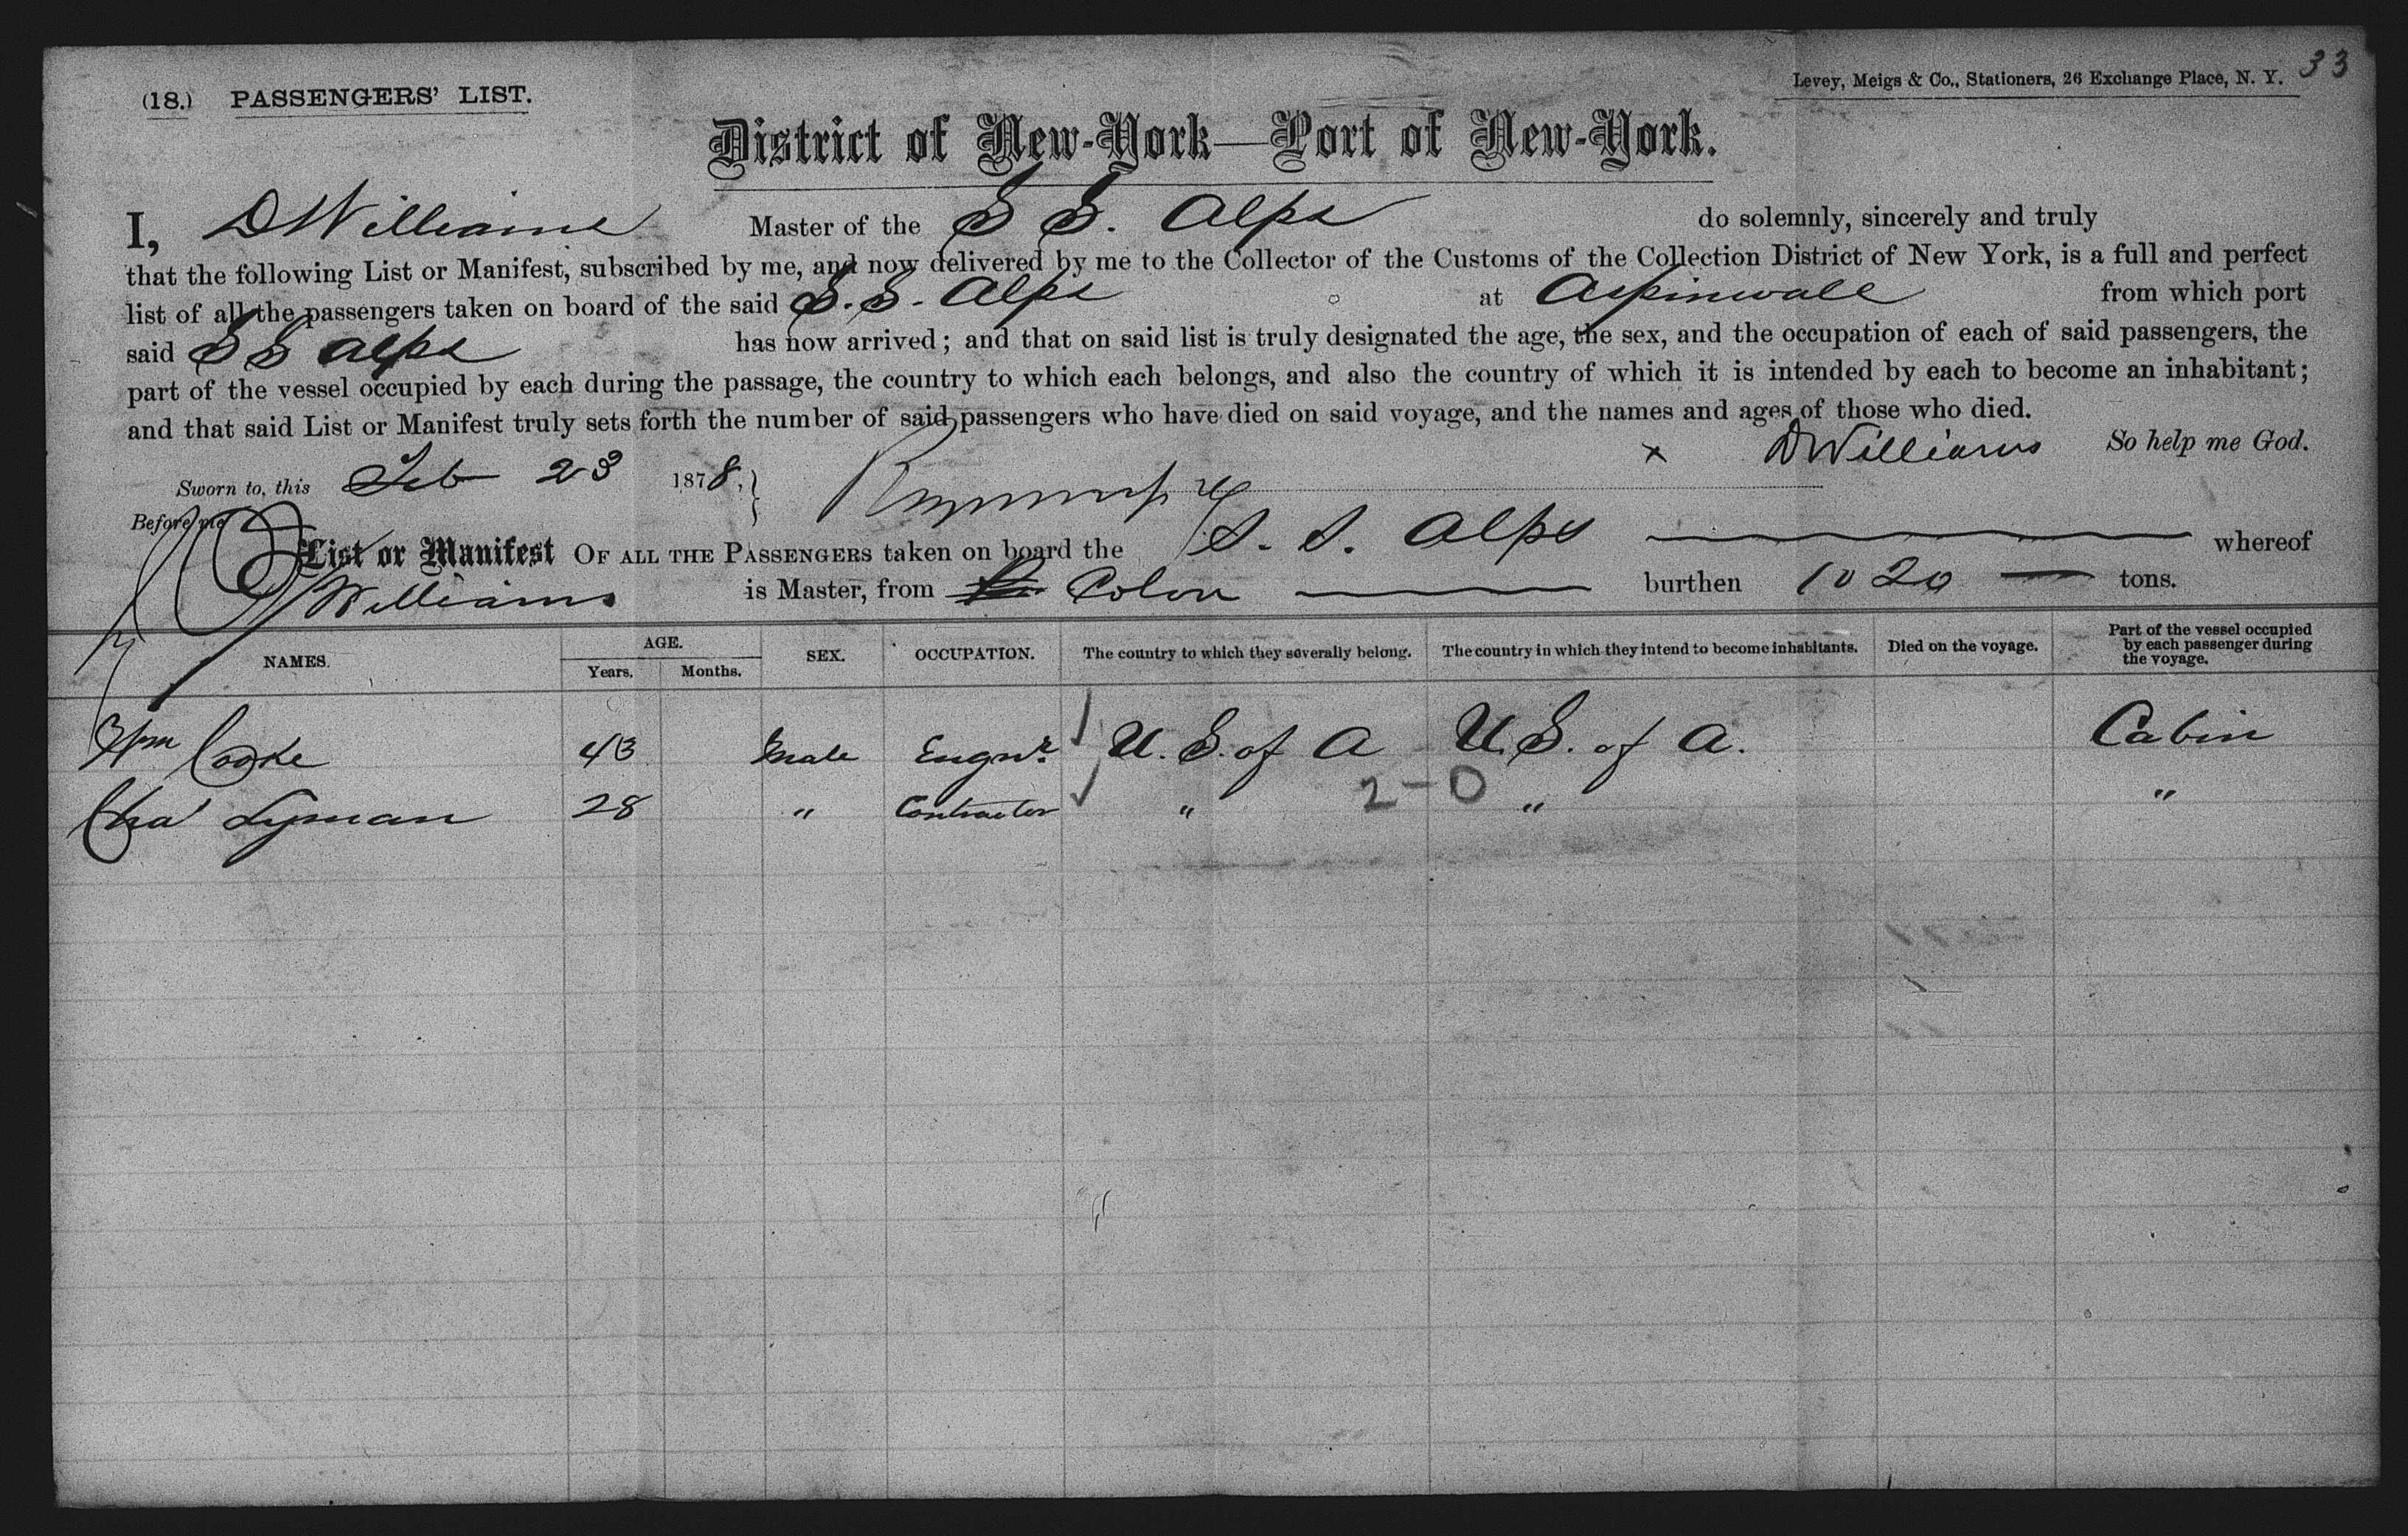 33
(18.) PASSENGERS' LIST.
Levey, Meigs & Co., Stationers, 26 Exchange Place, N. Y.
District of New-York—Port of New-York.
I, D Williams Master of the S S. Alps do solemnly, sincerely and truly
that the following List or Manifest, subscribed by me, and now delivered by me to the Collector of the Customs of the Collection District of New York, is a full and perfect
list of all the passengers taken on board of the said S. S. Alps at Aspinwall from which port
said S S Alps has now arrived; and that on said list is truly designated the age, the sex, and the occupation of each of said passengers, the
part of the vessel occupied by each during the passage, the country to which each belongs, and also the country of which it is intended by each to become an inhabitant;
and that said List or Manifest truly sets forth the number of said passengers who have died on said voyage, and the names and ages of those who died.
x D Williams So help me God.
Sworn to, this Feb 23 1878,
Before me
List or Manifest OF ALL THE PASSENGERS taken on board the S. S. Alps whereof
Williams is Master, from Colon burthen 1020 tons.
NAMES. AGE. Years. Months. SEX. OCCUPATION. The country to which they severally belong. The country in which they intend to become inhabitants. Died on the voyage. Part of the vessel occupied by each passenger during the voyage.
Wm Cooke 43 Male Engnr. U. S. of A U. S. of A. Cabin
Chas Lyman 28 " Contractor " 2-0 " "